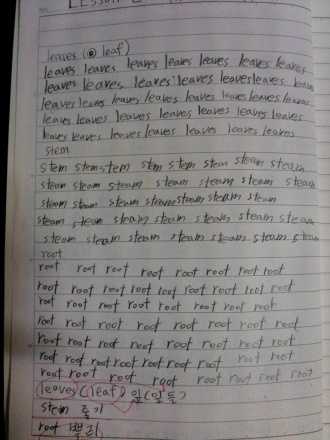 LESSON
leaves (leaf)
leaves leaves leaves leaves leaves leaves leaves
leaves leaves leaves leaves leaves leaves leaves
leaves leaves leaves leaves leaves leaves leaves leaves
leaves leaves leaves leaves leaves leaves leaves
leaves leaves leaves leaves leaves leaves leaves
stem
stem stem stem stem stem stem steam steam
steam steam steam steam steam steam steam
steam steam steam steam steam steam steam
steam steam steam steam steam steam steam
steam steam steam steam steam steam steam steam
root
root root root root root root root root
root root root root root root root root root
root root root root root root root root
root root root root root root root root
root root root root root root root root
root root root root root root root root
root root root root root root root root
leaves (leaf) 잎(잎들)
stem 줄기
root 뿌리